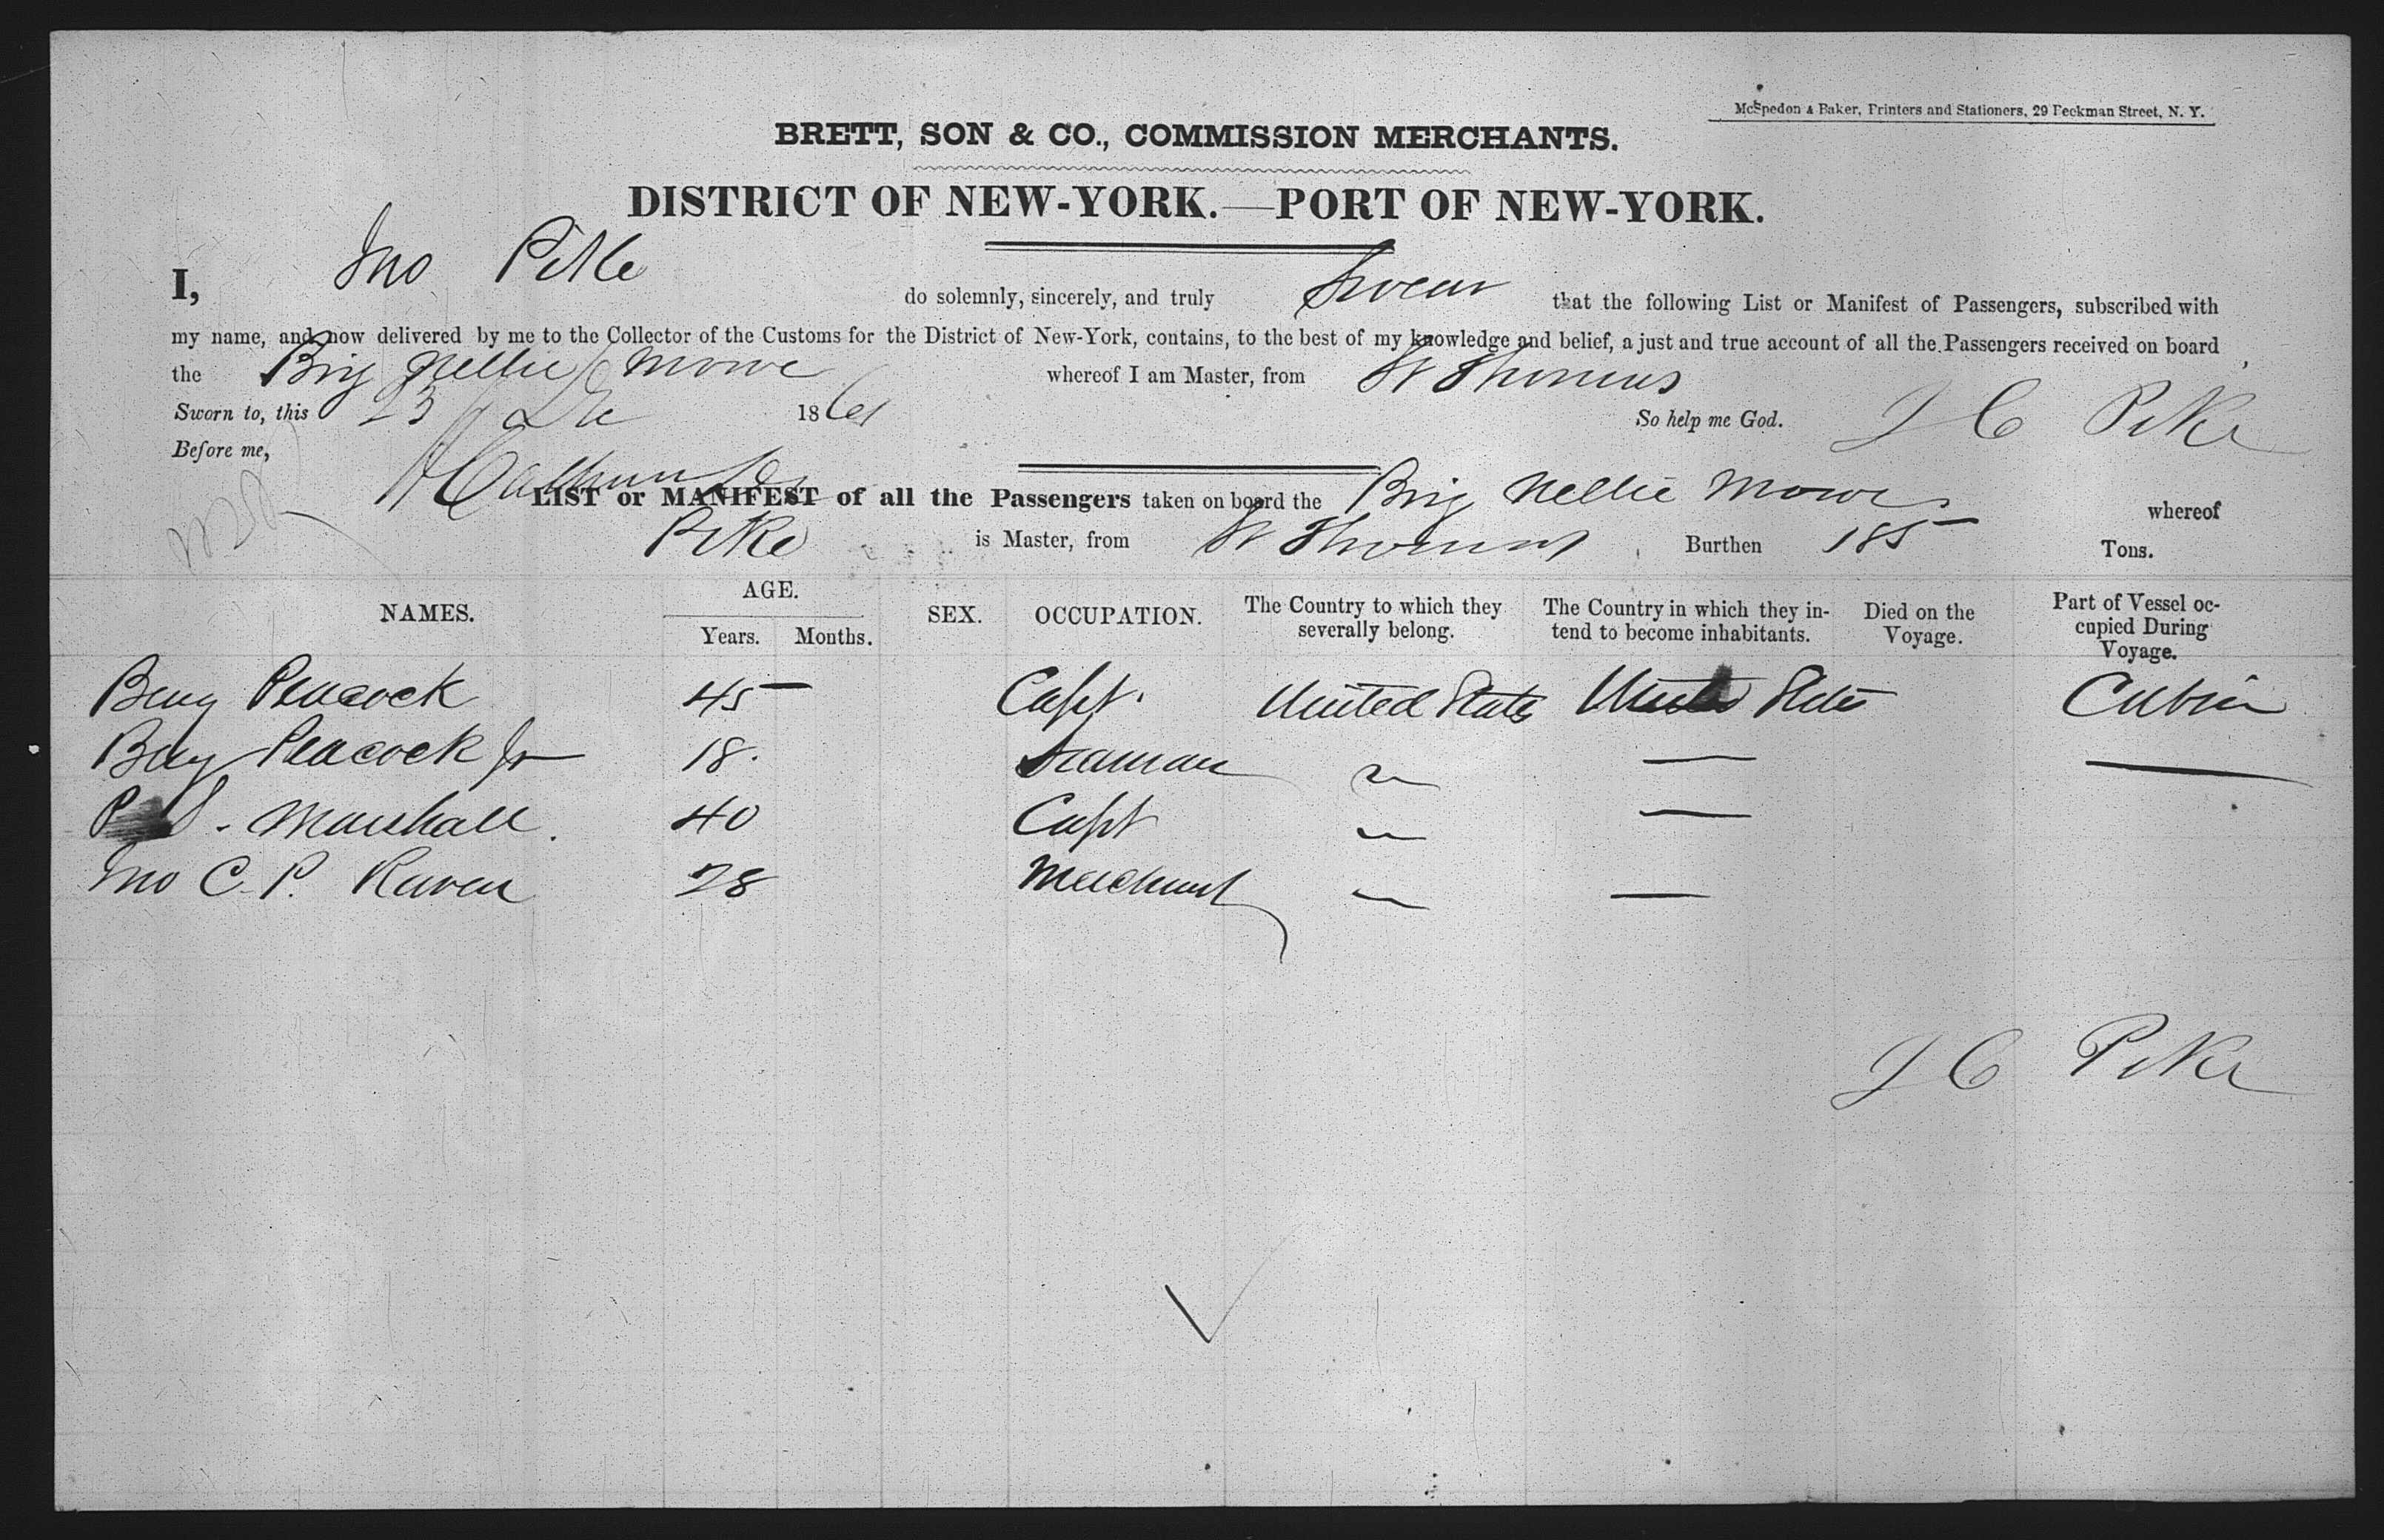 McSpedon & Baker, Printers and Stationers, 29 Beekman Street, N. Y.
BRETT, SON & CO., COMMISSION MERCHANTS.
DISTRICT OF NEW-YORK.—PORT OF NEW-YORK.
I, Jno Pike do solemnly, sincerely, and truly Swear that the following List or Manifest of Passengers, subscribed with
my name, and now delivered by me to the Collector of the Customs for the District of New-York, contains, to the best of my knowledge and belief, a just and true account of all the Passengers received on board
the Brig Nellie Mowe whereof I am Master, from St Thomas
Sworn to, this 23 De 1861 So help me God. J C Pike
Before me,
LIST or MANIFEST of all the Passengers taken on board the Brig Nellie Mowe whereof
Pike is Master, from St Thomas Burthen 185 Tons.
NAMES. AGE. Years. Months. SEX. OCCUPATION. The Country to which they severally belong. The Country in which they intend to become inhabitants. Died on the Voyage. Part of Vessel occupied During Voyage.
Benj Peacock 45 Capt. United States United States Cabin
Benj Peacock Jr 18. Seaman " — —
P S. Marshall. 40 Capt " —
Jno C. P. Raven 28 Merchant " —
J C Pike